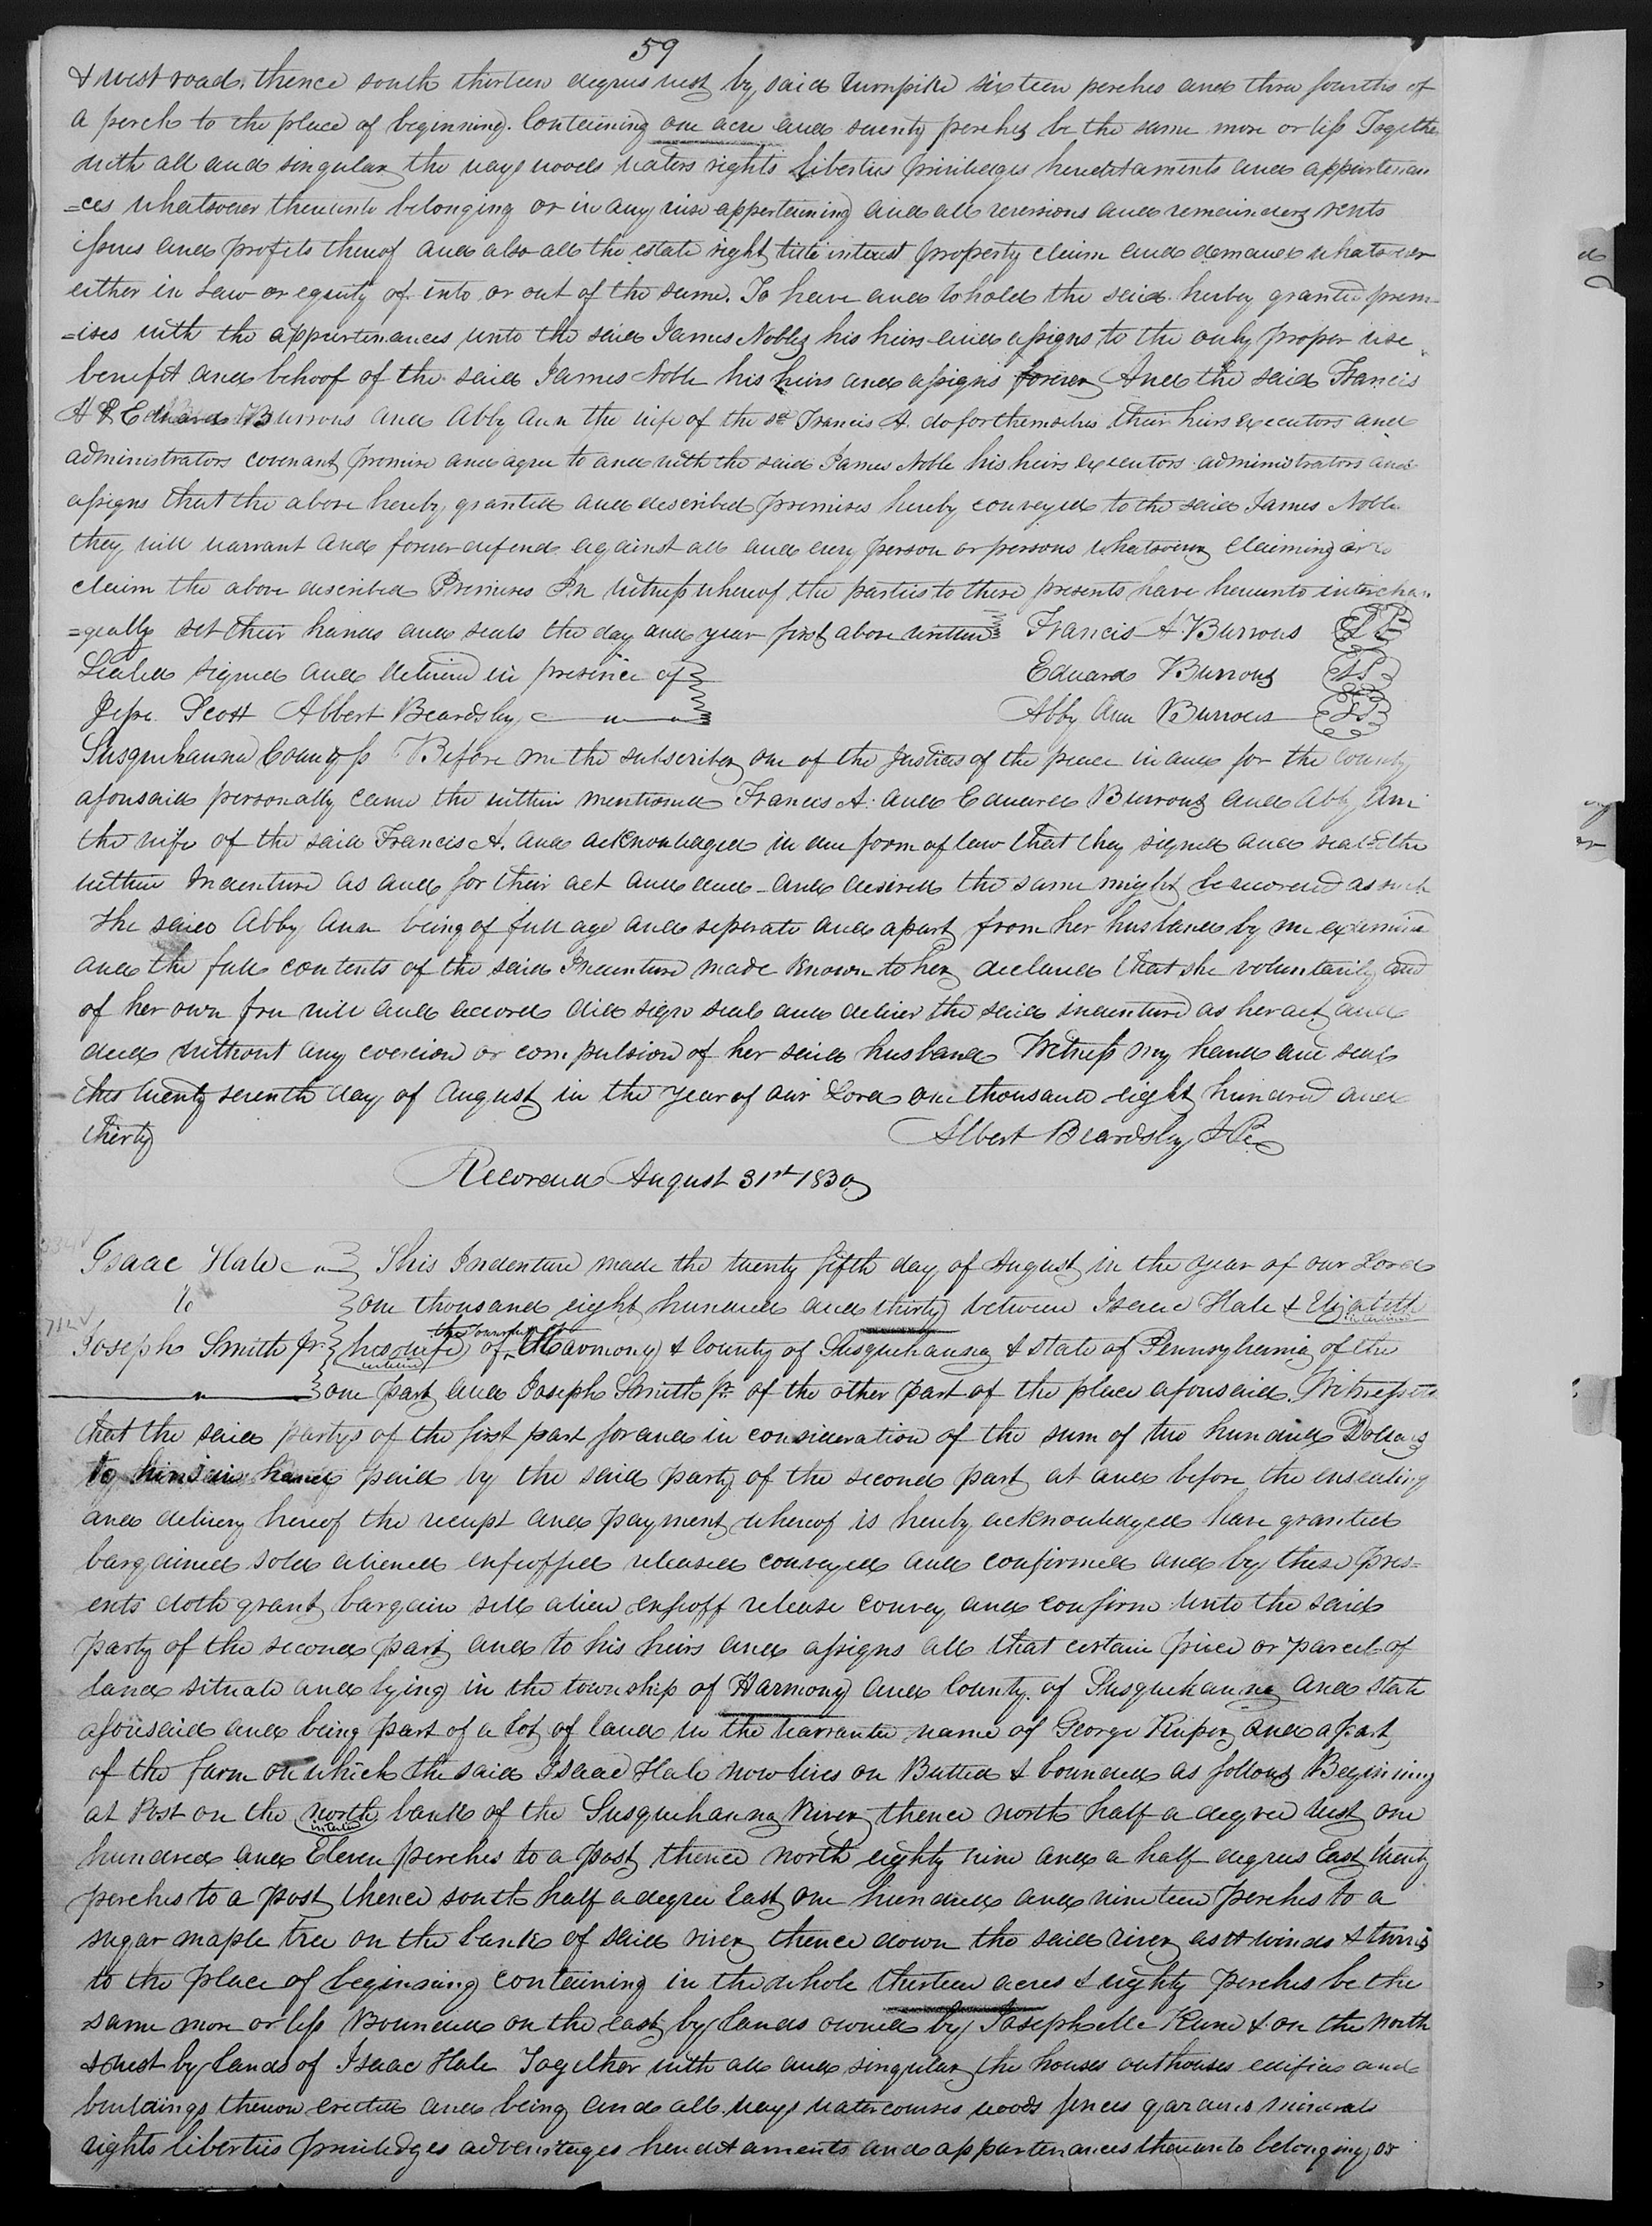 59
& west road. thence south thirteen degrees west by said turnpike sixteen perches and three fourths of
a perch to the place of beginning. Containing one acre and seventy perches be the same more or less Together
with all and singular the ways woods waters rights liberties priviledges hereditaments and appurtenan
=ces whatsoever thereunto belonging or in any wise appertaining and all reversions and remainders rents
issues and profits thereof and also all the estate right title interest property claim and demand whatsoever
either in Law or equity of into or out of the same. To have and to hold the said hereby granted prem
=ises with the appurtenances unto the said James Noble his heirs and assigns to the only proper use
benefit and behoof of the said James Noble his heirs and assigns forever And the said Francis
A & Edward Burrows and Abby Ann the wife of the sd Francis A. do for themselves their heirs executors and
administrators covenant promise and agree to and with the said James Noble his heirs executors administrators and
assigns that the above hereby granted and described premises hereby conveyed to the said James Noble
they will warrant and forever defend against all and every person or persons whatsoever claiming or to
claim the above described Premises In witness whereof the parties to these presents have hereunto interchan
=geably set their hands and seals the day and year first above written Francis A Burrows LS
Sealed signed and delivered in presence of Edward Burrows LS
Jesse Scott Albert Beardsley Abby Ann Burrows LS
Susquehanna County ss Before me the subscriber one of the Justices of the peace in and for the County
aforesaid personally came the within mentioned Francis A. and Edward Burrows and Abby Ann
the wife of the said Francis A. and acknowledged in due form of law that they signed and seald the
within Indenture as and for their act and deed and desired the same might be recorded as such
the said Abby Ann being of full age and seperate and apart from her husband by me examined
and the full contents of the said Indenture made known to her declared that she voluntarily and
of her own free will and accord did sign seal and deliver the said indenture as her act and
deed without any coercion or compulsion of her said husband Witness my hand and seal
this twenty seventh day of August in the year of our Lord one thousand eight hundred and
thirty Albert Beardsley J.P.
Recorded August 31st 1830
Isaac Hale This Indenture made the twenty fifth day of August in the year of our Lord
to one thousand eight hundred and thirty between Isaac Hale & Elizabeth
Joseph Smith Jr. his wife of the township of Harmony & County of Susquehanna & State of Pennsylvania of the
one part and Joseph Smith Jr. of the other part of the place aforesaid. Witnesseth
that the said partys of the first part for and in consideration of the sum of two hundred Dollars
to him in hand paid by the said party of the second part at and before the ensealing
and delivery hereof the receipt and payment whereof is hereby acknowledged have granted
bargained sold aliened enfeoffed released conveyed and confirmed and by these pres=
ents doth grant bargain sell alien enfeoff release convey and confirm unto the said
party of the second part and to his heirs and assigns all that certain piece or parcel of
land situate and lying in the township of Harmony and County of Susquehanna and State
aforesaid and being part of a lot of land in the warrantee name of George Ruper and a part
of the farm on which the said Isaac Hale now lives on Butted & bounded as follows Beginning
at Post on the north bank of the Susquehanna River thence north half a degree west one
hundred and Eleven perches to a post thence north eighty nine and a half degrees East twenty
perches to a post thence south half a degree East one hundred and nineteen perches to a
sugar maple tree on the bank of said river thence down the said river as it winds & turns
to the place of beginning containing in the whole thirteen acres & eighty perches be the
same more or less Bounded on the east by lands owned by Joseph Mc Kune & on the North
& west by lands of Isaac Hale Together with all and singular the houses outhouses edifices and
buildings thereon erected and being and all ways watercourses woods fences gardens minerals
rights liberties priviledges advantages hereditaments and appurtenances thereunto belonging or